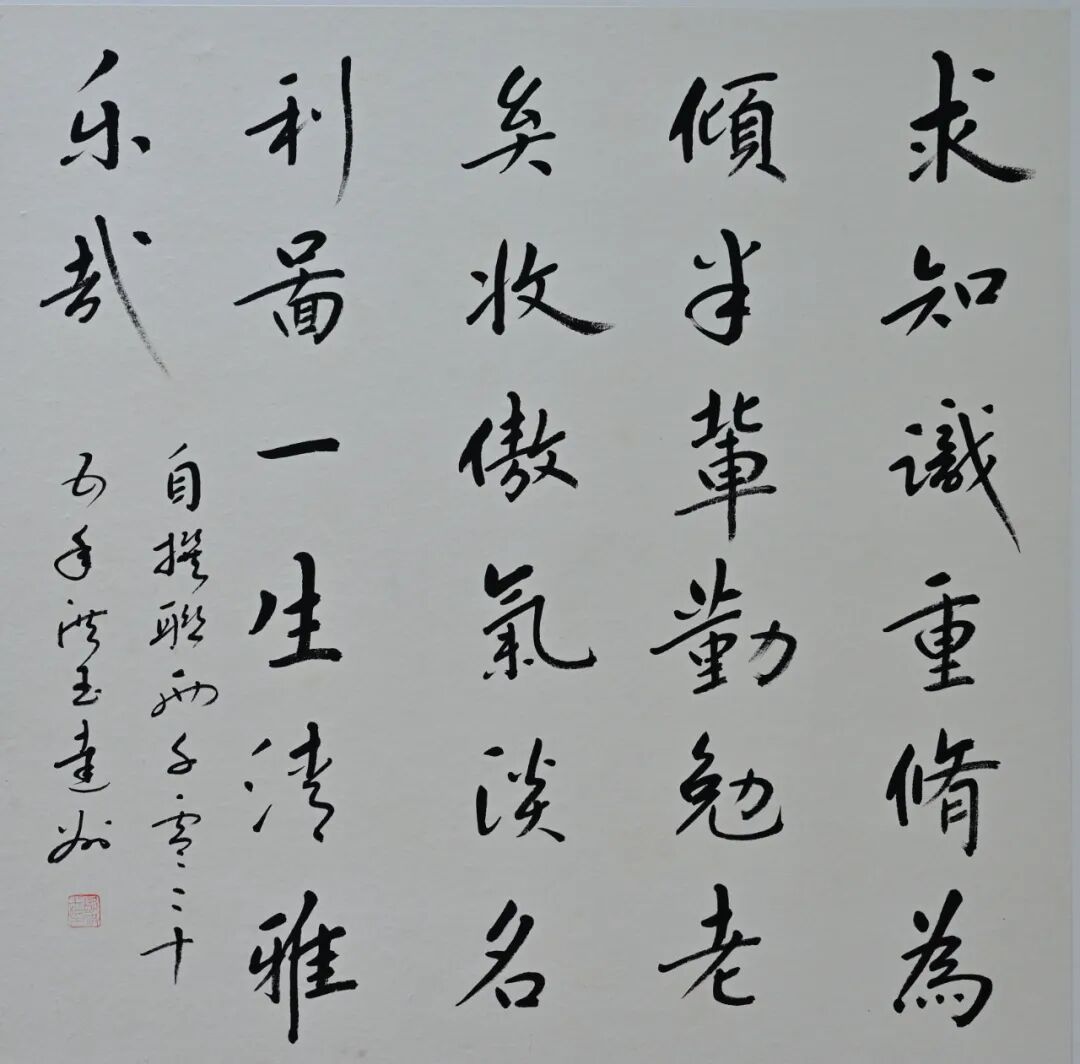 求知識重脩為
傾半輩勤勉老
矣收傲氣淡名
利啚一生清雅
乐哉
自撰聯兩千零二十
五年洪玉達州